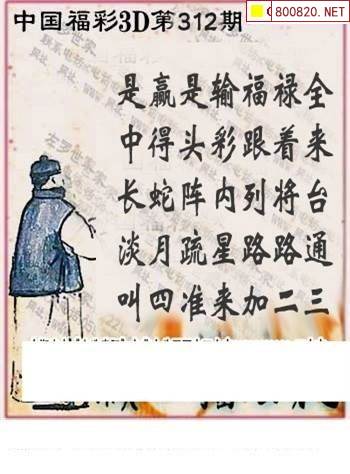 中国福彩3D第312期
800820.NET
是赢是输福禄全
中得头彩跟着来
长蛇阵内列将台
淡月疏星路路通
叫四准来加二三